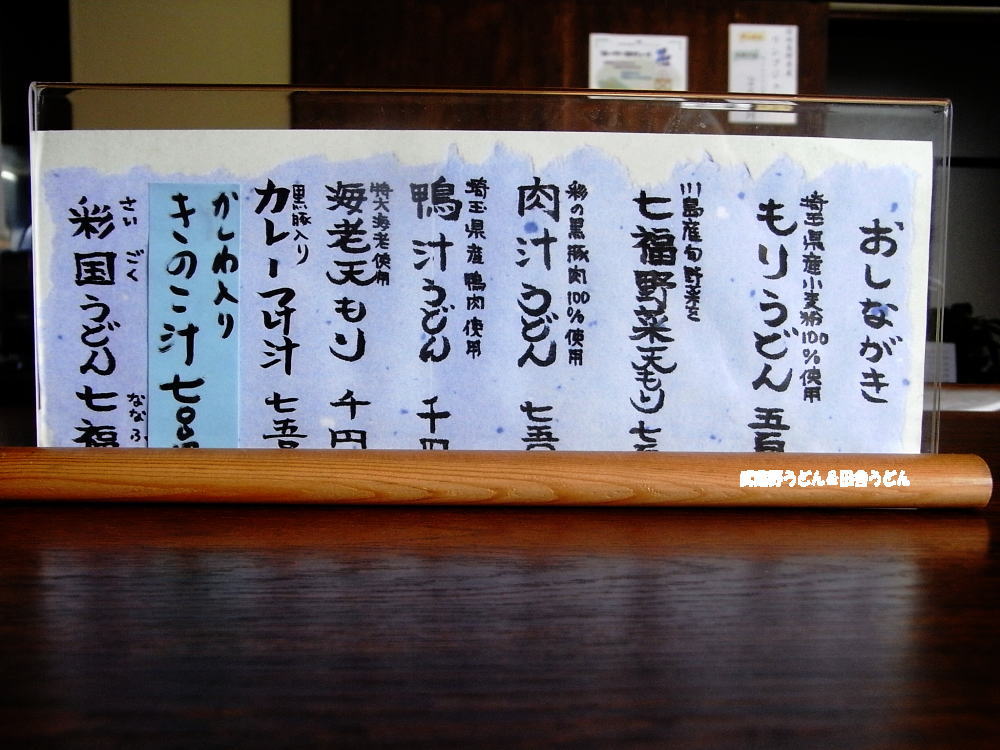 おしながき
埼玉県産小麦粉100%使用
もりうどん 五百
川島産旬野菜を
七福野菜天もり 七
彩の黒豚肉100%使用
肉汁うどん 七五
埼玉県産鴨肉使用
鴨汁うどん 千円
特大海老使用
海老天もり 千円
黒豚入り
カレーつけ汁 七五
かしわ入り
きのこ汁 七
さい ごく ななふ
彩国うどん 七福
うどん&田舎うどん